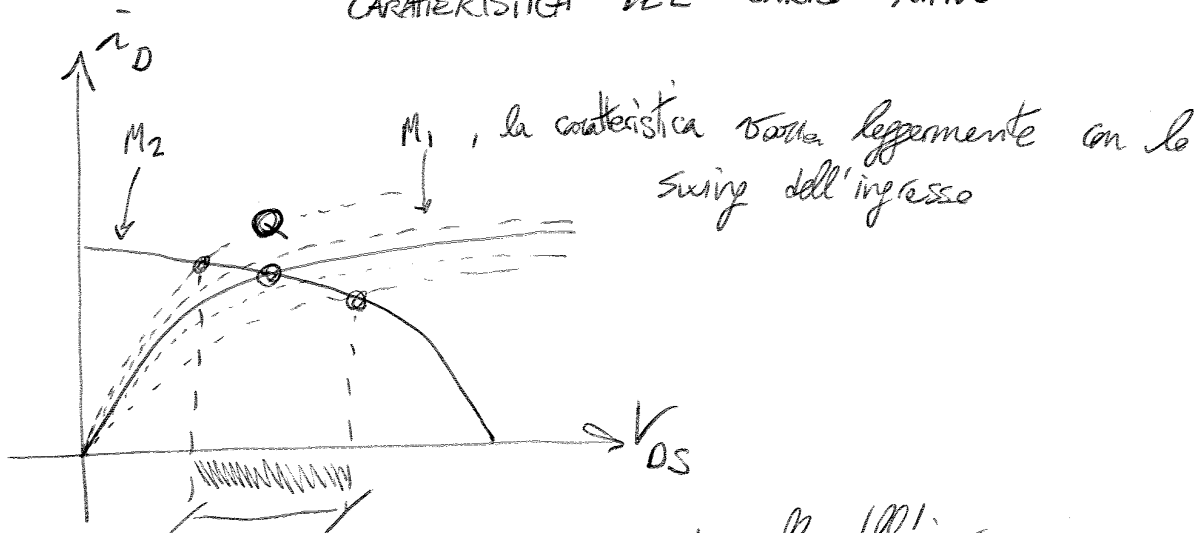 CARATTERISTICA DEL CARICO ATTIVO
i_D
M2
M1 , la caratteristica varia leggermente con lo
swing dell'ingresso
Q
V_DS